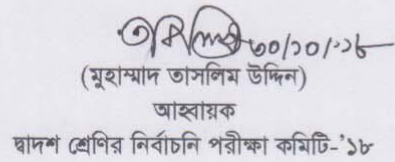 ৩০/১০/১৮
(মুহাম্মাদ তাসলিম উদ্দিন)
আহবায়ক
দ্বাদশ শ্রেণির নির্বাচনি পরীক্ষা কমিটি-'১৮